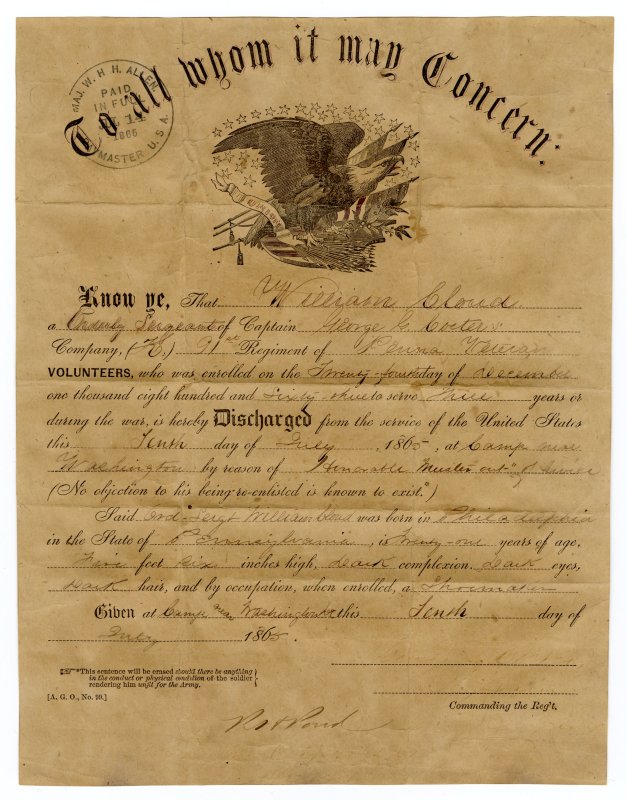 To all whom it may Concern:
MAJ. W. H. H. ALLEN,
PAID
IN FULL
1865
PAYMASTER U.S.A.
Know ye, That William Cloud
a Orderly Sergeant of Captain George G. Coster's
Company, (K.) 91st Regiment of Penna Veteran
VOLUNTEERS, who was enrolled on the Twenty-fourth day of December
one thousand eight hundred and Sixty-three to serve Three years or
during the war, is hereby Discharged from the service of the United States
this Tenth day of July, 1865, at Camp near
Washington by reason of "Honorable Muster out" of service
(No objection to his being re-enlisted is known to exist.*)
Said Ord-Sergt William Cloud was born in Philadelphia
in the State of Pennsylvania, is Twenty-one years of age,
Five feet six inches high, Dark complexion, Dark eyes,
Dark hair, and by occupation, when enrolled, a Shoemaker
Given at Camp near Washington this Tenth day of
July 1865.
*This sentence will be erased should there be anything
in the conduct or physical condition of the soldier
rendering him unfit for the Army.
[A. G. O., No. 99.]
Commanding the Reg't.